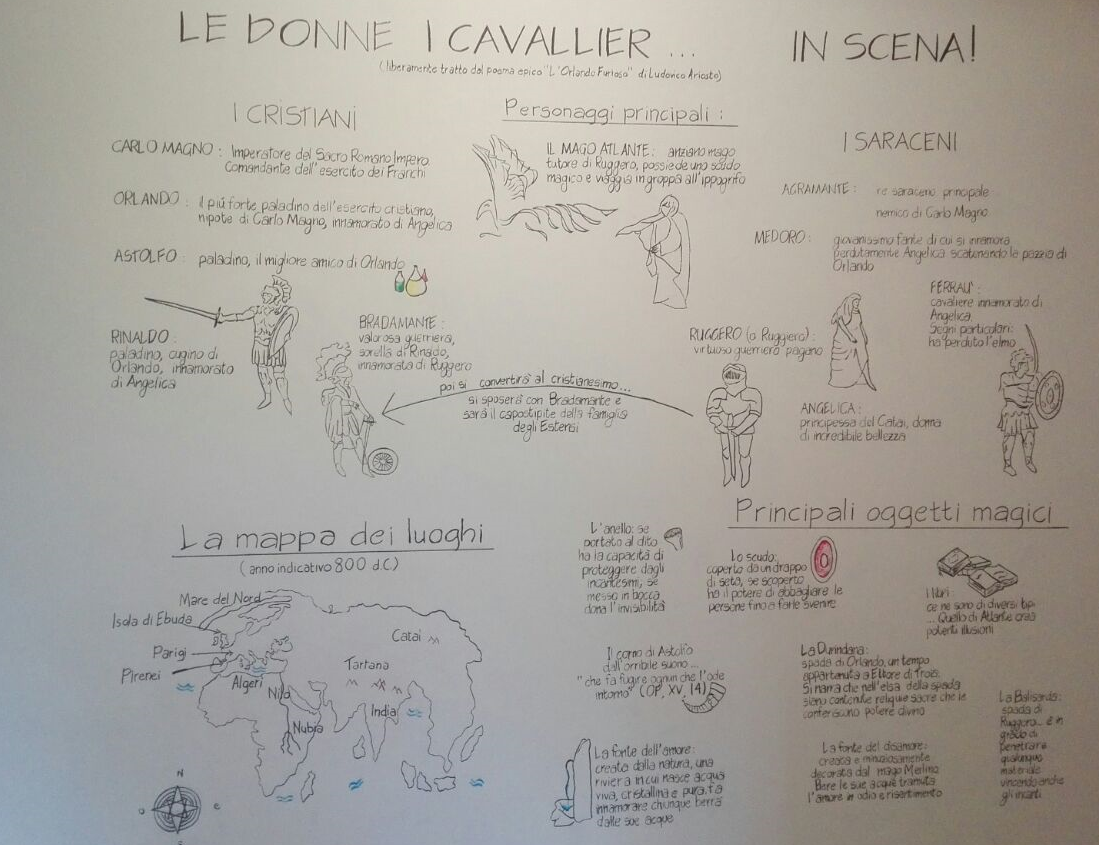 LE DONNE I CAVALLIER ... IN SCENA!
(liberamente tratto dal poema epico "L'Orlando Furioso" di Ludovico Ariosto)
I CRISTIANI
CARLO MAGNO: Imperatore del Sacro Romano Impero.
Comandante dell'esercito dei Franchi
ORLANDO: il più forte paladino dell'esercito cristiano,
nipote di Carlo Magno, innamorato di Angelica
ASTOLFO: paladino, il migliore amico di Orlando
RINALDO:
paladino, cugino di
Orlando, innamorato
di Angelica
BRADAMANTE:
valorosa guerriera,
sorella di Rinaldo,
innamorata di Ruggero
Personaggi principali:
IL MAGO ATLANTE: anziano mago
tutore di Ruggero, possiede uno scudo
magico e viaggia in groppa all'ippogrifo
poi si convertirà al cristianesimo...
si sposerà con Bradamante e
sarà il capostipite della famiglia
degli Estensi
I SARACENI
AGRAMANTE: re saraceno principale
nemico di Carlo Magno
MEDORO: giovanissimo fante di cui si innamora
perdutamente Angelica scatenando la pazzia di
Orlando
FERRAU':
cavaliere innamorato di
Angelica.
Segni particolari:
ha perduto l'elmo
RUGGERO (o Ruggiero):
virtuoso guerriero pagano
ANGELICA:
principessa del Catai, donna
di incredibile bellezza
La mappa dei luoghi
(anno indicativo 800 d.C)
Mare del Nord
Isola di Ebuda
Parigi
Pirenei
Algeri
Nilo
Nubia
Catai
Tartaria
India
N
e
o
s
Principali oggetti magici
L'anello: se
portato al dito
ha la capacità di
proteggere dagli
incantesimi, se
messo in bocca
dona l'invisibilità
Lo scudo:
coperto da un drappo
di seta, se scoperto
ha il potere di abbagliare le
persone fino a farle svenire
I libri:
ce ne sono di diversi tipi
... Quello di Atlante crea
potenti illusioni
Il corno di Astolfo
dall'orribile suono...
"che fa fugire ognun che l'ode
intorno" (OF, XV, 14)
La Durindana:
spada di Orlando, un tempo
appartenuta a Ettore di Troia.
Si narra che nell'elsa della spada
siano contenute reliquie sacre che le
conferiscono potere divino
La Balisarda:
spada di
Ruggero... è in
grado di
penetrare
qualunque
materiale
vincendo anche
gli incanti
La fonte dell'amore:
creata dalla natura, una
riviera in cui nasce acqua
viva, cristallina e pura, fa
innamorare chiunque berrà
dalle sue acque
La fonte del disamore:
creata e minuziosamente
decorata dal mago Merlino
Bere le sue acque tramuta
l'amore in odio e risentimento